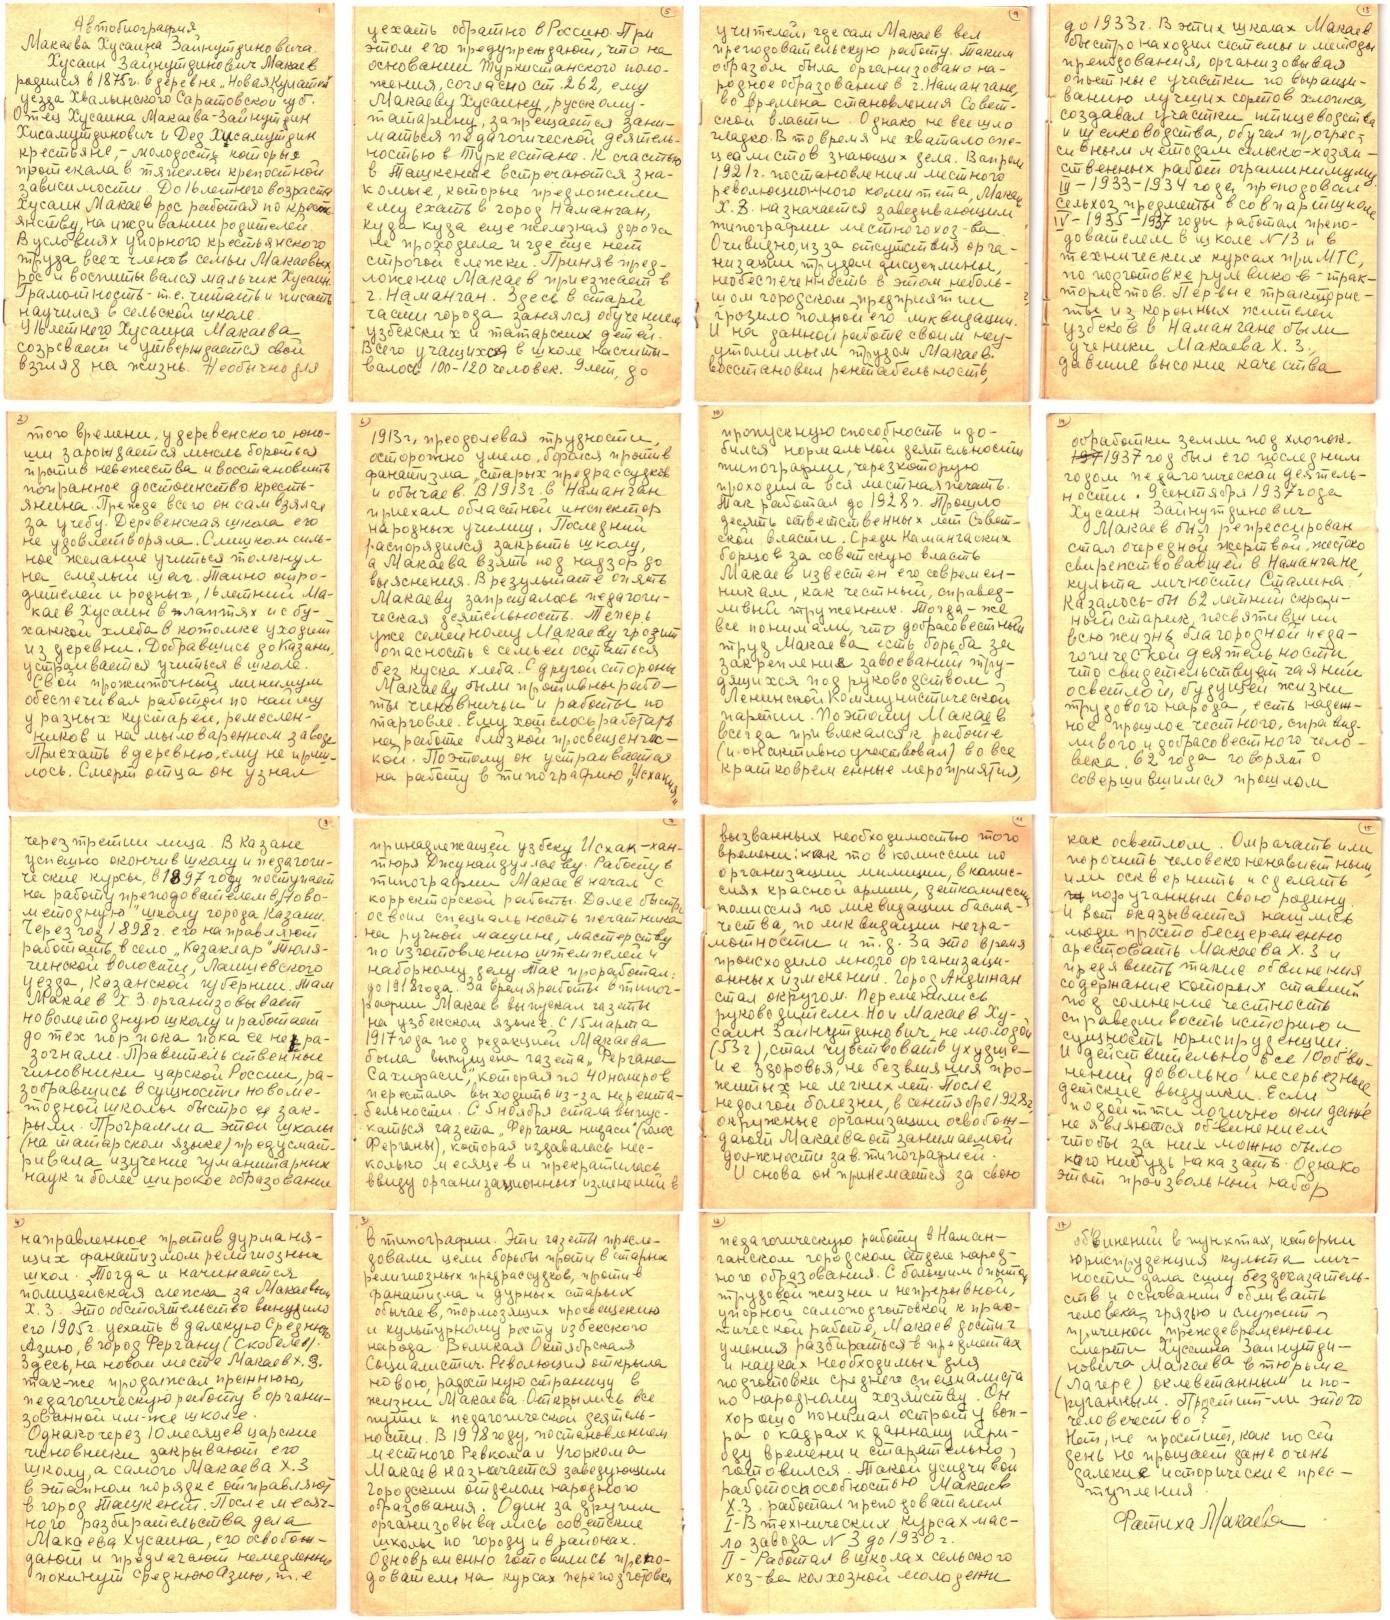 1
Автобиография
Макаева Хусаина Зайнутдиновича.
Хусаин Зайнутдинович Макаев
родился в 1875г. в деревне „Новая Кулаткой
уезда Хвалынского Саратовской губ.
Отец Хусаина Макаева-Зайнутдин
Хисамутдинович и Дед Хисамутдин
крестьяне, - молодость которых
протекала в тяжелой крепостной
зависимости. До 16 летнего возраста
Хусаин Макаев рос работая по крест
янству, на иждивании родителей.
В условиях упорного крестьянского
труда всех членов семьи Макаевых
рос и воспитывался мальчик Хусаин.
Грамотность - т.е. читать и писать
научился в сельской школе.
У 16 летнего Хусаина Макаева
созревает и утверждается свой
взгляд на жизнь. Необычно для
2
того времени, у деревенского юно-
ши зарождается мысль бороться
против невежества и восстановить
попранное достоинство кресть-
янина. Прежде всего он сам взялся
за учебу. Деревенская школа его
не удовлетворяла. Слишком силь-
ное желание учиться толкнул
на смелый шаг. Тайно от ро-
дителей и родных, 16 летний Ма-
каев Хусаин в лаптях и с бу-
ханкой хлеба в котомке уходит
из деревни. Добравшись до Казани,
устраивается учиться в школе.
Свой прожиточный минимум
обеспечивал работой по найму
у разных кустарей, ремеслен-
ников и на мыловаренном заводе
Приехать в деревню, ему не приш-
лось. Смерт отца он узнал
3
через третии лица. В Казане
успешно окончив школу и педагоги-
ческие курсы, в 1897 году поступает
на работу преподователем в „Ново-
методную" школу города Казани.
Через год 1898г. его направляют
работать в село „Казаклар" Тюля-
чинской волости, Лаишевского
уезда, Казанской губернии. Там
Макаев Х.З. организовывает
новометодную школу и работает
до тех пор пока пока ее не ра-
зогнали. Правительственные
чиновники царской России, ра-
зобравшись в сущности новоме-
тодной школы быстро ее зак-
рыли. Программа этой школы
(на татарском языке) предусмат-
ривала изучение гуманитарных
наук и более широкое образовании
4
направленное против дурманя-
щих фанатизмом религиозных
школ. Тогда и начинается
полицейская слежка за Макаевым
Х.З. Это обстоятельство вынудило
его 1905г. уехать в далекую Среднюю
Азию, в город Фергану (Скобелев).
Здесь, на новом месте Макаев Х.З.
так-же продолжал прежнюю,
педагогическую работу в органи-
зованной им-же школе.
Однако через 10 месяцев царские
чиновники закрывают его
школу, а самого Макаева Х.З
в этапном порядке отправляют
в город Ташкент. После месяч-
ного разбирательства дела
Макаева Хусаина, его освобож-
дают и предлагают немедленно
покинут Среднюю Азию, т.е
5
уехать обратно в Россию. При
этом его предупреждают, что на
основании Туркистанского поло-
жения, согласно ст. 262, ему
Макаеву Хусаину, русскому-
татарину, запрещается зани-
маться педагогической деятель-
ностью в Туркестане. К счастью
в Ташкенте встречаются зна-
комые, которые предложили
ему ехать в город Наманган,
куда куда еще железная дорога
не проходила и где еще нет
строгой слежки. Приняв пред-
ложение Макаев приезжает в
г. Наманган. Здесь в старе
части города занялся обучением
узбекских и татарских детей.
Всего учащихся в школе насчиты-
валось 100-120 человек. 9 лет, до
6
1913г, преодолевая трудности,
осторожно умело, боролся против
фанатизма „старых предрассудков
и обычаев. В 1913г. в Наманган
приехал областной инспектор
народных училищ. Последний
распорядился закрыть школу,
а Макаева взять под надзор до
выяснения. В результате опять
Макаеву запрещалось педагоги-
ческая деятельность. Теперь
уже семейному Макаеву грозит
опасность с семьей остаться
без куска хлеба. С другой стороны
Макаеву были противны рабо-
ты чиновничьи и работы по
торговле. Ему хотелось работать
на работе близкой просвещенчес-
кой. Поэтому он устраивается
на работу в типографию „Исхакия"
7
принадлежащей узбеку Исхак-хан-
тюря Джунайдуллаеву. Работу в
типографии Макаев начал с
корректорской работы. Далее быстро
освоил специальность печатника
на ручной машине, мастерству
по изготовлению штемпелей и
наборному делу. Так проработал:
до 1918 года. За время работы в типог-
рафии Макаев выпускал газеты
на узбекском языке. С 15 марта
1917 года под редакцией Макаева
была выпущена газета „Фергана
Сахифаси", которая по 40 номеров
перестала выходить из-за нерента-
бельности. С 5 ноября стала выпус-
каться газета „Фергана нидаси" (голос
Ферганы), которая издавалась нес-
колько месяцев и прекратилась
ввиду организационных изменений в
в типографии. Эти газеты пресле-
довали цели борьбы против старых
религиозных предрассудков, против
фанатизма и дурных старых
обычаев, тормозящих просвещению
и культурному росту узбекского
народа. Великая Октябрская
Социалистич. Революция открыла
новою, радостную страницу в
жизни Макаева. Открылись все
пути к педагогической деятель-
ности. В 1918 году, постановлением
местного Ревкома и Угоркома
Макаев назначается заведующим
городским отделом народного
образования. Один за другим
организовывались советские
школы по городу и в районах.
Одновременно готовились препо-
даватели на курсах переподготовки
9
учителей, где сам Макаев вел
преподовательскую работу. Таким
образом была организовано на-
родное образование в г. Намангане,
во времена становления Совет-
ской власти. Однако не все шло
гладко. В то время не хватало спе-
циалистов знающих дела. В апреле
1921г. постановлением местного
революционного комитета, Макаев
Х.З. назначается заведывающим
типографии местного хоз-ва.
Очевидно, из за отсутствия орга-
низации трудов дисциплины,
необеспеченность в этом неболь-
шом городском предприятии
грозило полной его ликвидации.
И на данной работе своим неу-
утомимым трудом Макаев
восстановил рентабельность,
10
пропускную способность и до-
бился нормальной деятельности
типографии, через которую
проходила вся местная печать.
Так работал до 1928г. Прошло
десять ответственных лет Совет-
ской власти. Среди Намангаских
борцов за советскую власть
Макаев известен его современ-
никам, как честный, справед-
ливый труженик. Тогда-же
все понимали, что добрасовестный
труд Макаева есть борьба за
закрепление завоеваний тру-
дящихся под руководством
Ленинской Коммунистической
партии. Поэтому Макаев
всегда привлекался к работе
(и он активно участвовал) во все
кратковременные мероприятия,
11
вызванных необходимостью того
времени: как то в комиссии по
организации милиции, в комис-
сиях красной армии, деткомиссии
комиссия по ликвидации басма-
чества, по ликвидации негра-
мотности и т.д. За это время
происходило много организаци-
онных изменений. Город Андижан
стал округом. Переменились
руководители. Но и Макаев Ху-
саин Зайнутдинович, не молодой
(53г), стал чувствовать ухудше-
ние здоровья, не без влияния про-
житых не легких лет. После
недолгой болезни, в сентябре 1928г.
окружные организации освобож-
дают Макаева от занимаемой
должности зав. типографией.
И снова он принемается за свою
12
педагогическую работу в Наман-
ганском городском отделе народ-
ного образования. С большим опытом
трудовой жизни и непрерывной,
упорной самоподготовкой к прак-
тической работе, Макаев достиг
умения разбираться в предметах
и науках необходимых для
подготовки среднего специалиста
по народному хозяйству. Он
хорошо понимал остроту воп-
ра о кадрах к данному пери-
оду времени и старательно,
готовился. Такой усидчивой
работоспособностью Макаев
Х.З. работал преподователем
I-В технических курсах мас-
ло завода №3 до 1930г.
II - Работал в школах сельского
хоз-ва колхозной молодежи
13
до 1933г. В этих школах Макаев
быстро находил системы и методы
преподования, организовывая
опытные участки по выращи-
ванию лучших сортов хлопка,
создавал участки птицеводства
и шелководства, обучал прогрес-
сивным методам сельско-хозяй-
ственных работ ограмничиму.
III - 1933-1934 года, преподовал
сельхоз предметы в совпартшколе
IV - 1935-1937 годы работал препо-
дователем в школе №13 и в
технических курсах при МТС,
по подготовке рулевиков-трак-
тористов. Первые тракторис-
ты из коренных жителей
узбеков в Намангане были
ученики Макаева Х.З.,
давшие высокие качества
14
обработки земли под хлопок.
1937 год был его последним
годом педагогической деятель-
ности. 9 сентября 1937 года
Хусаин Зайнутдинович
Макаев был репрессирован
стал очередной жертвой, жестоко
свирепствовавшей в Намангане,
культа личности Сталина.
Казалось-бы 62 летний скром-
ный старик, посвятивший
всю жизнь благородной педа-
гогической деятельности
что свидетельствует чаяний
о светлой, будущей жизни
трудового народа, есть надеж-
ное прошлое честного, справед-
ливого и добрасовестного чело-
века. 62 года говорят о
совершившимся прошлом
15
как о светлом. Омрачать или
порочить человеконенавистным,
или осквернить и сделать
поруганным свою родину.
И вот оказывается нашлись
люди просто бесцеремонно
арестовать Макаева Х.З. и
предявить такие обвинения
содержание которых ставит
под сомнение честность
справедливость историю и
сущность юриспруденции.
И действительно все 10 обви-
нений довольно несерьезные
детские выдумки. Если
подойти логично они даже
не являются обвинением
чтобы за них можно было
кого нибудь наказать. Однако
этот произвольный набор
обвинений в пунктах, которым
юриспруденция культа лич-
ности дала силу бездоказатель-
ств и оснований обливать
человека грязью и служит
причиной преждевременной
смерти Хусаина Зайнутди-
новича Макаева в тюрьме
(лагере) оклеветанным и по-
руганным. Простит-ли этого
человечество?
Нет, не простит, как по сей
день не прощает даже очень
далекие исторические прес-
тупления.
Фатиха Макаева